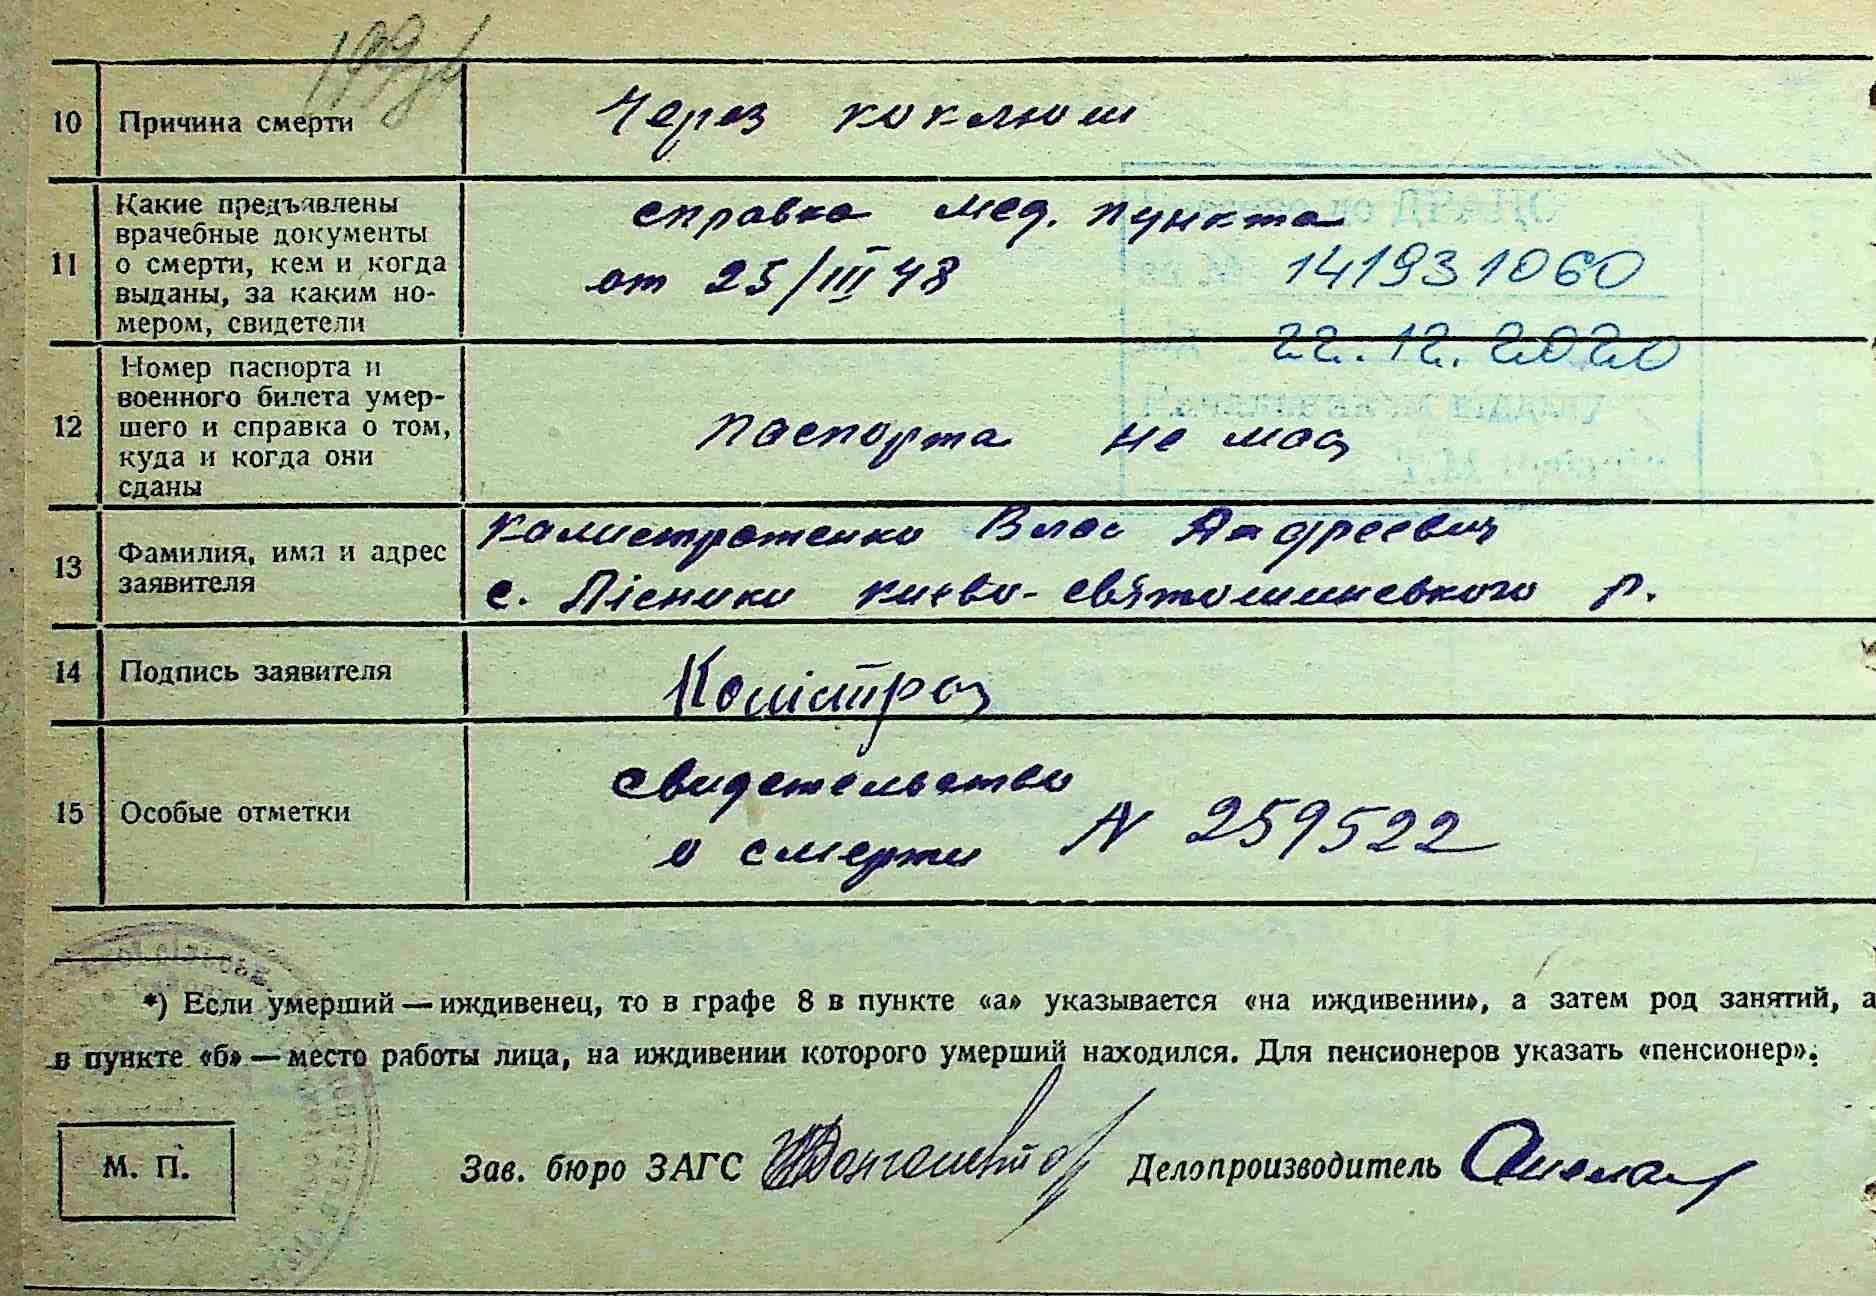 10 Причина смерти Через коклюш
11 Какие предъявлены
врачебные документы
о смерти, кем и когда
выданы, за каким но-
мером, свидетели
справка мед. пункта
от 25/III 48
141931060
22.12.2020
12 Номер паспорта и
военного билета умер-
шего и справка о том,
куда и когда они
сданы
паспорта не має
13 Фамилия, имя и адрес
заявителя
Калистратенко Влас Андреевич
с. Лісники Києво-Святошинського р.
14 Подпись заявителя
15 Особые отметки
свидетельство
о смерти N 259522
*) Если умерший — иждивенец, то в графе 8 в пункте «а» указывается «на иждивении», а затем род занятий, а
в пункте «б» — место работы лица, на иждивении которого умерший находился. Для пенсионеров указать «пенсионер».
М. П. Зав. бюро ЗАГС Делопроизводитель